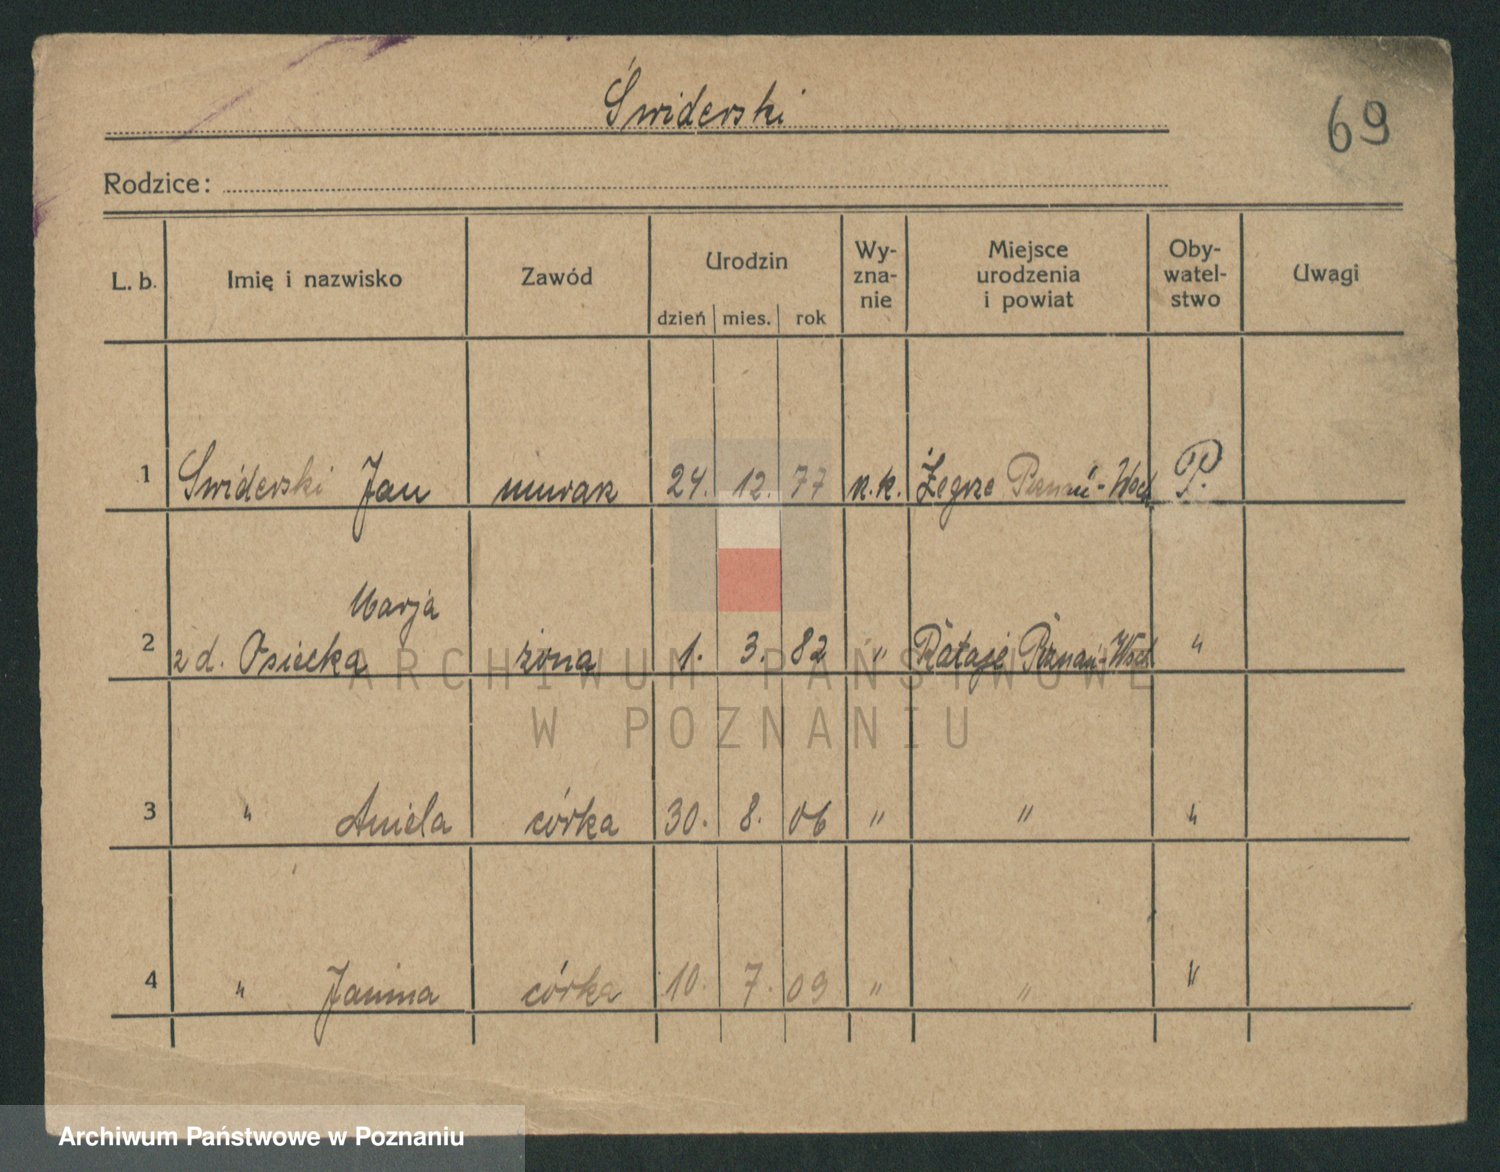 Świderski
69
Rodzice:
L. b. Imię i nazwisko Zawód Urodzin dzień mies. rok Wy-zna-nie Miejsce urodzenia i powiat Oby-watel-stwo Uwagi
1 Świderski Jan murarz 24. 12. 77 r.k. Żegrze Poznań-Wsch P.
Marja
2 z d. Osiecka żona 1. 3. 82 " Rataje Poznań-Wsch "
3 " Aniela córka 30. 8. 06 " " "
4 " Janina córka 10. 7. 09 " " "
ARCHIWUM PAŃSTWOWE
W POZNANIU
Archiwum Państwowe w Poznaniu